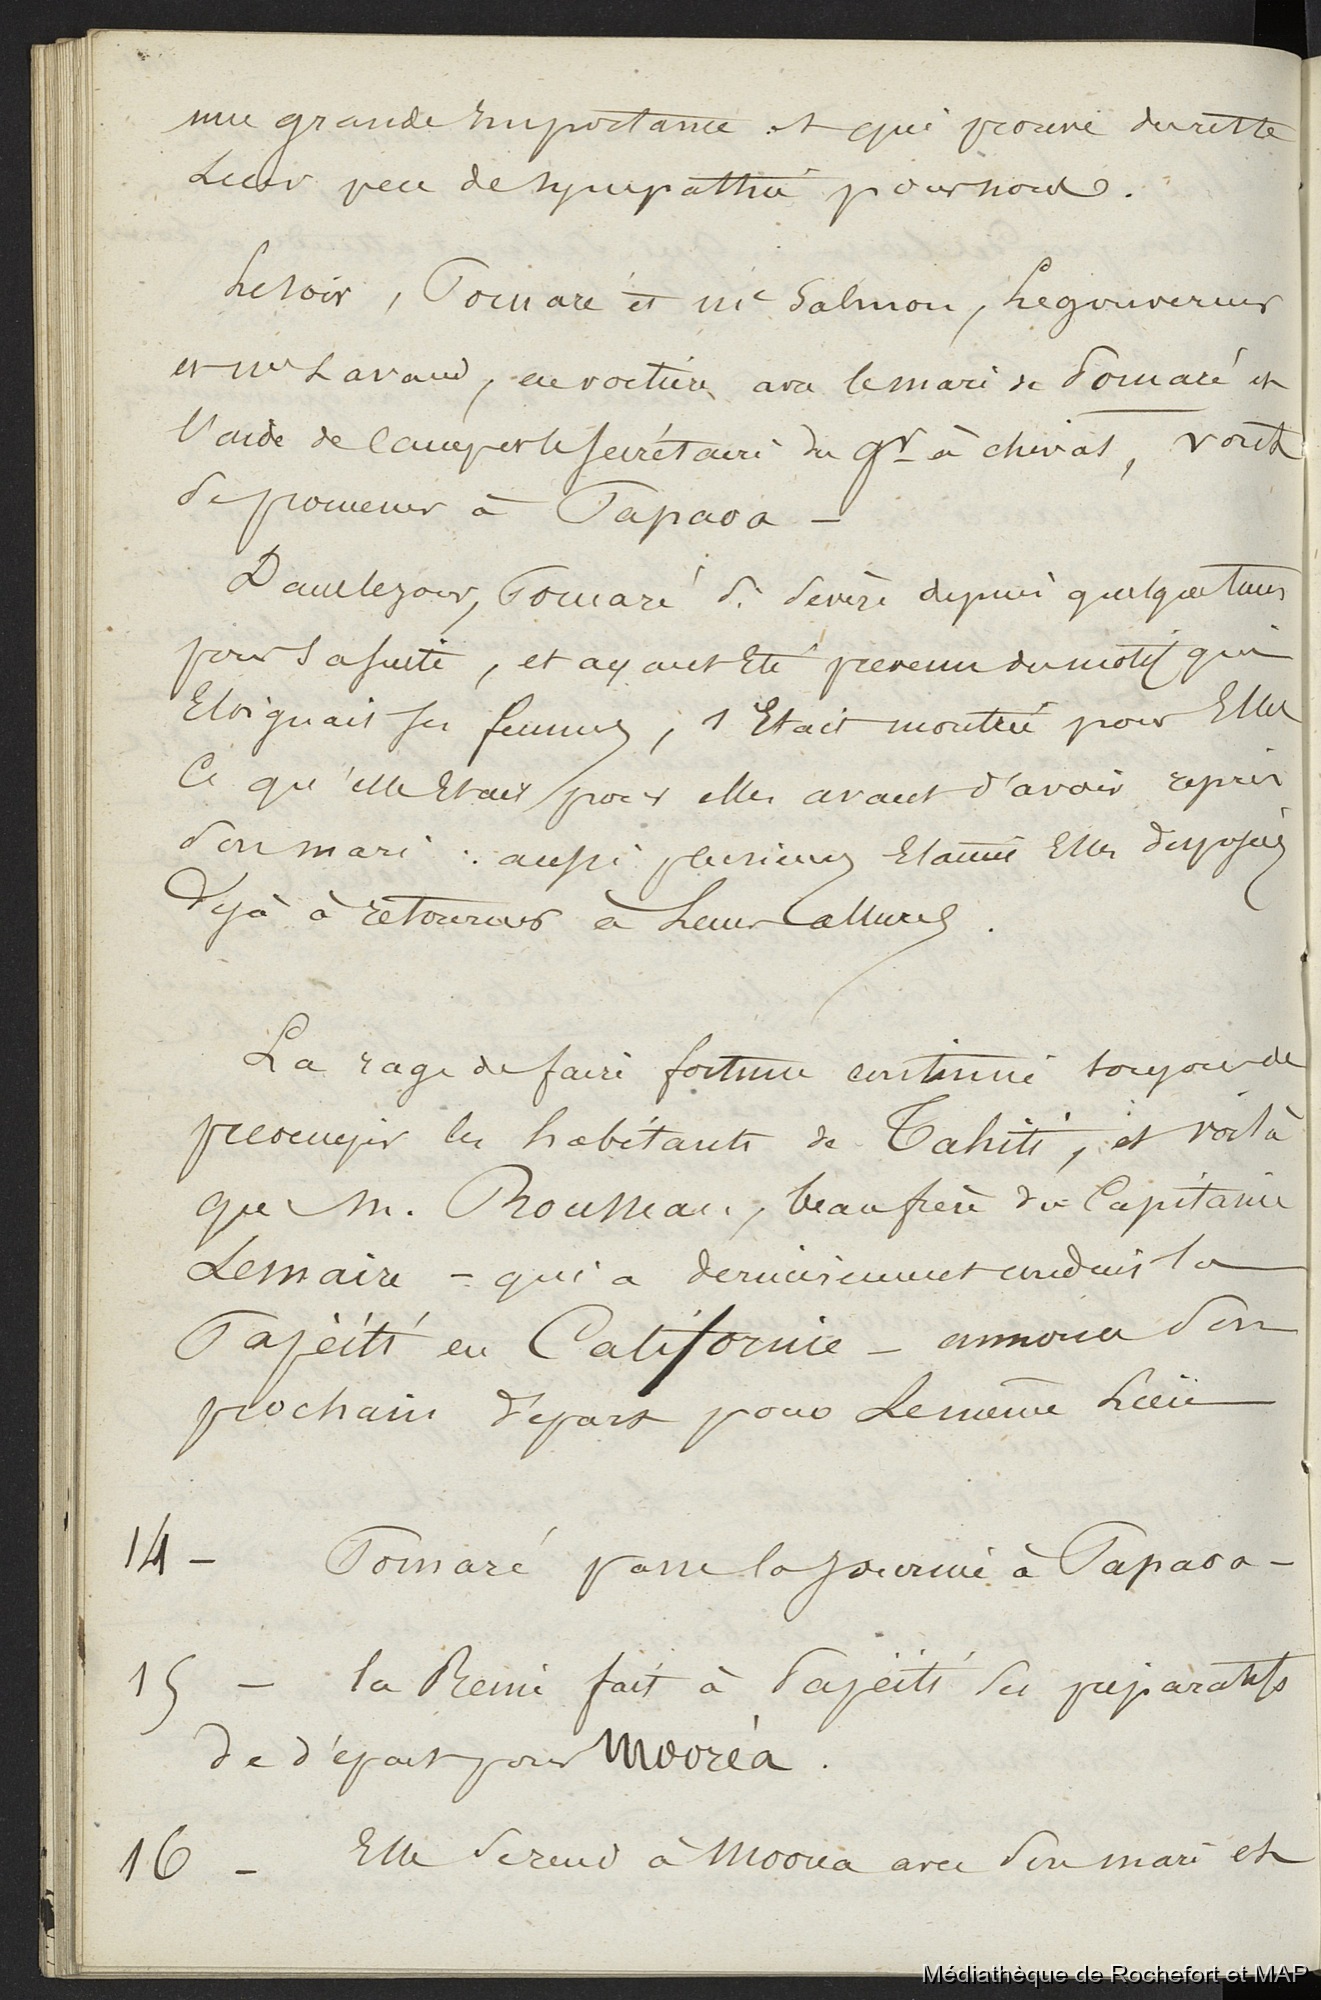 une grande importance et qui prouve du reste
Leur peu de sympathie pour nous.
Le soir, Pomaré et Me Salmon, Le gouverneur
et Me Lavaud, en voiture, avec le mari de Pomaré et
l'aide de camp et le secrétaire du Gr à cheval, vont
se promener à Papaoa –
Dans le jour, Pomaré si sévère depuis quelque tems
pour sa suite, et ayant été prévenu du motif qui
Eloignait ses femmes, s'Etait montrée pour Elles
Ce qu'elle Etait pour elles avant d'avoir repris
son mari : aussi plusieurs Etaient Elles disposées
déjà à retourner à Leurs allures.
La rage de faire fortune continue toujours de
préoccuper les habitants de Tahiti, et voilà
que M. Rousseau, beau frère du Capitaine
Lemaire – qui a dernièrement conduit la
Papéiti en Californie – annonce son
prochain départ pour Le même Lieu
14 – Pomaré passe la journée à Papaoa –
15 – la Reine fait à Papéiti ses préparatifs
de départ pour Mooréa.
16 – Elle se rend à Moorea avec son mari et
Médiathèque de Rochefort et MAP